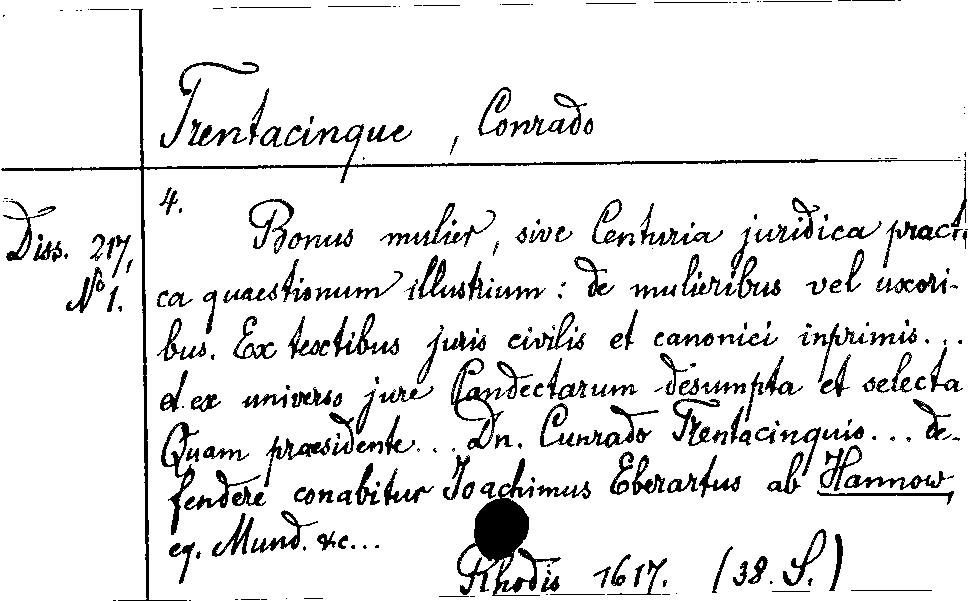 Trentacinque, Conrado
4.
Diss. 217,
No 1.
Bonus mulier, sive Centuria juridica practi
ca quaestionum illustrium: de mulieribus vel uxori-
bus. Ex textibus juris civilis et canonici inprimis...
et ex universo jure Pandectarum desumpta et selecta
Quam praesidente... Dn. Cunrado Trentacinquio... de-
fendere conabitur Joachimus Eberartus ab Hannow,
eq. Mund. &c...
Rhodis 1617. (38. S.)